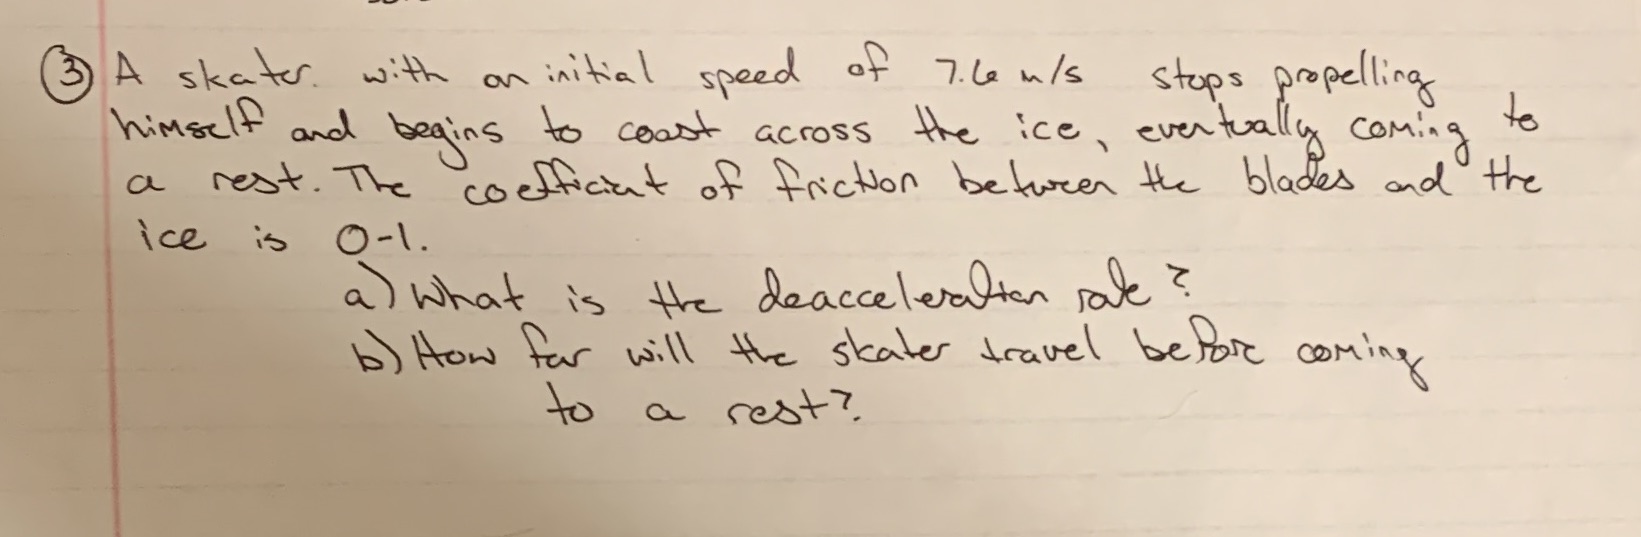 ③ A skater. with an initial speed of 7.6 m/s stops propelling
himself and begins to coast across the ice, eventually coming to
a rest. The coefficient of friction between the blades and the
ice is 0-1.
a) What is the deacceleration rate?
b) How far will the skater travel before coming
to a rest?